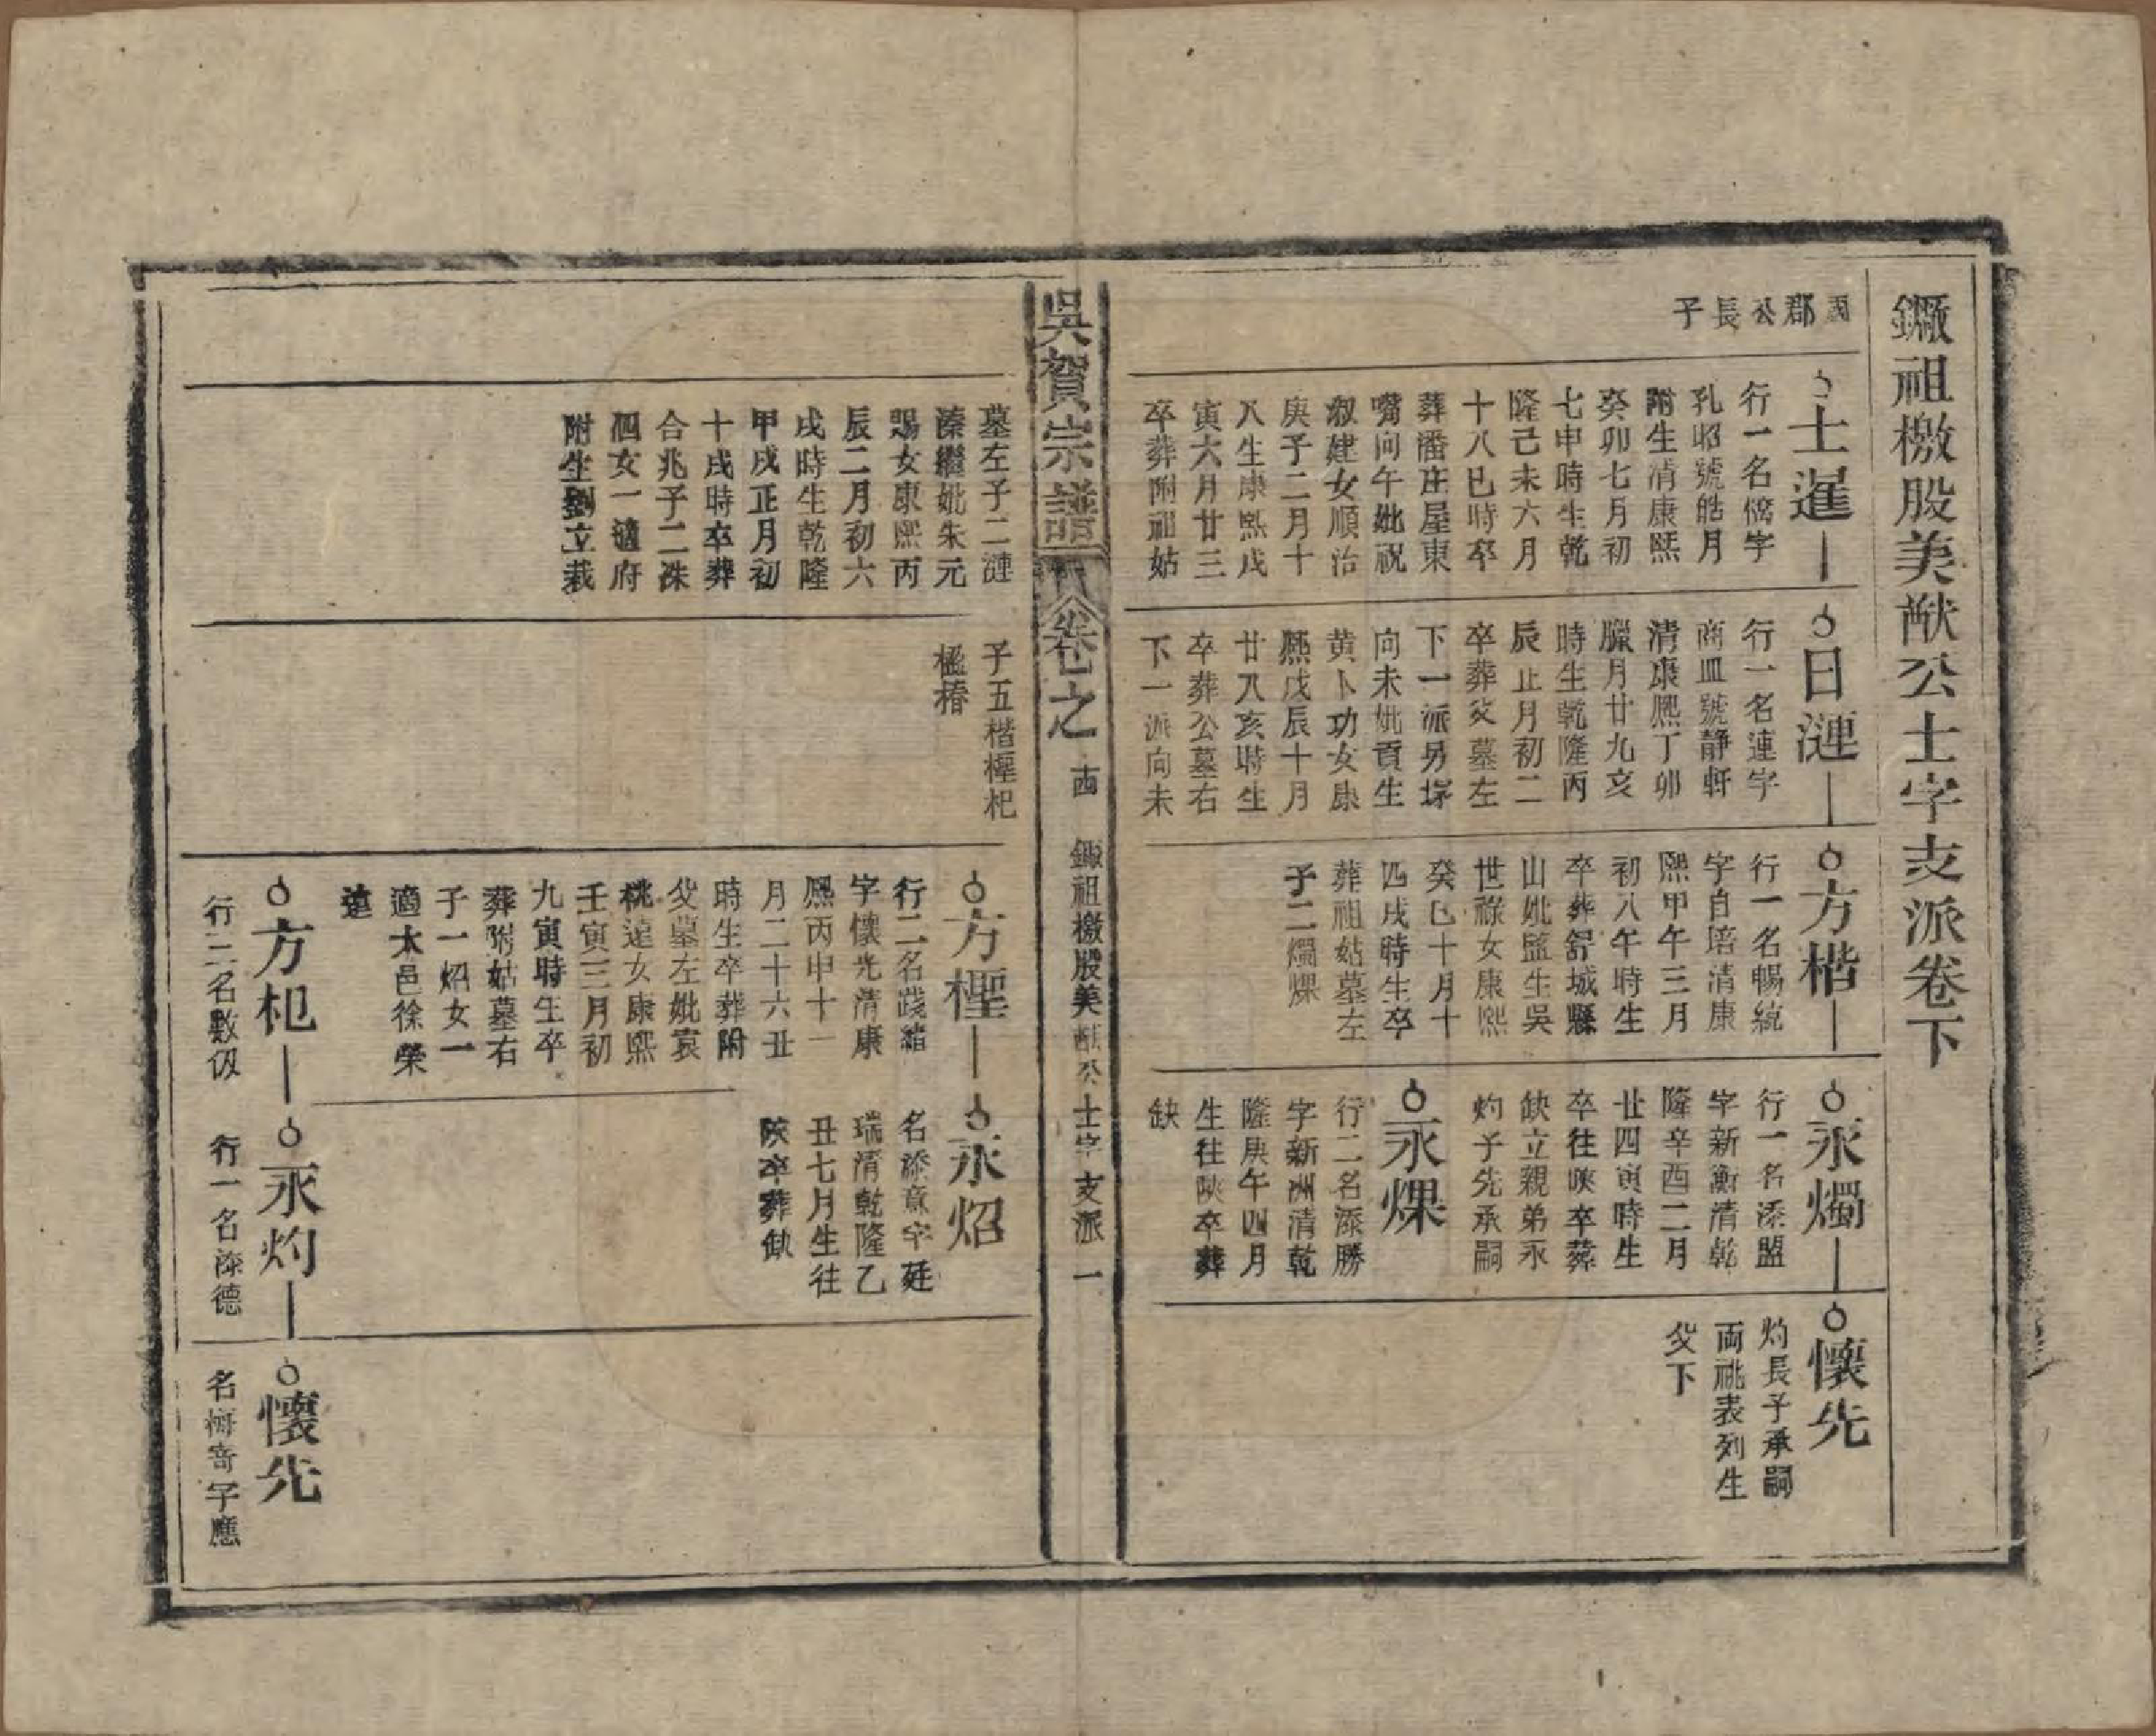 鐝祖檄股美猷公士字支派卷下
國郡公長子
士暹
行一名儒字
孔昭號皓月
附生清康熙
癸卯七月初
七申時生乾
隆己未六月
十八巳時卒
葬潘庄屋東
嘴向午妣祝
淑建女順治
庚子二月十
八生康熙戊
寅六月廿三
卒葬附祖姑
日漣
行一名連字
商皿號静軒
清康熙丁卯
臘月廿九亥
時生乾隆丙
辰正月初二
卒葬父墓左
下一派另塚
向未妣貢生
黄卜功女康
熙戊辰十月
廿八亥時生
卒葬公墓右
下一派向未
方楷
行一名暢統
字自培清康
熙甲午三月
初八午時生
卒葬舒城縣
山妣監生吳
世祿女康熙
癸巳十月十
四戌時生卒
葬祖姑墓左
子二燭煠
永燭
行一名添盟
字新衡清乾
隆辛酉二月
廿四寅時生
卒往陜卒葬
缺立親弟永
灼子先承嗣
永煠
行二名添勝
字新洲清乾
隆庚午四月
生往陜卒葬
缺
懷先
灼長子承嗣
両祧表列生
父下
吳賀宗譜
卷七之
西
鐝祖檄股美猷公士字支派
一
墓左子二漣
溱繼妣朱元
賜女康熙丙
辰二月初六
戌時生乾隆
甲戌正月初
十戌時卒葬
合兆子二洙
泗女一適府
附生劉立裁
子五楷檉杞
楹椿
方檉
行二名踐縮
字懷光清康
熙丙申十一
月二十六丑
時生卒葬附
父墓左妣袁
桃遠女康熙
壬寅三月初
九寅時生卒
葬附姑墓右
子一炤女一
適太邑徐榮
遠
永炤
名添意字廷
瑞清乾隆乙
丑七月生往
陜卒葬缺
方杞
行三名數仭
永灼
行一名添德
懷先
名梅竒字應